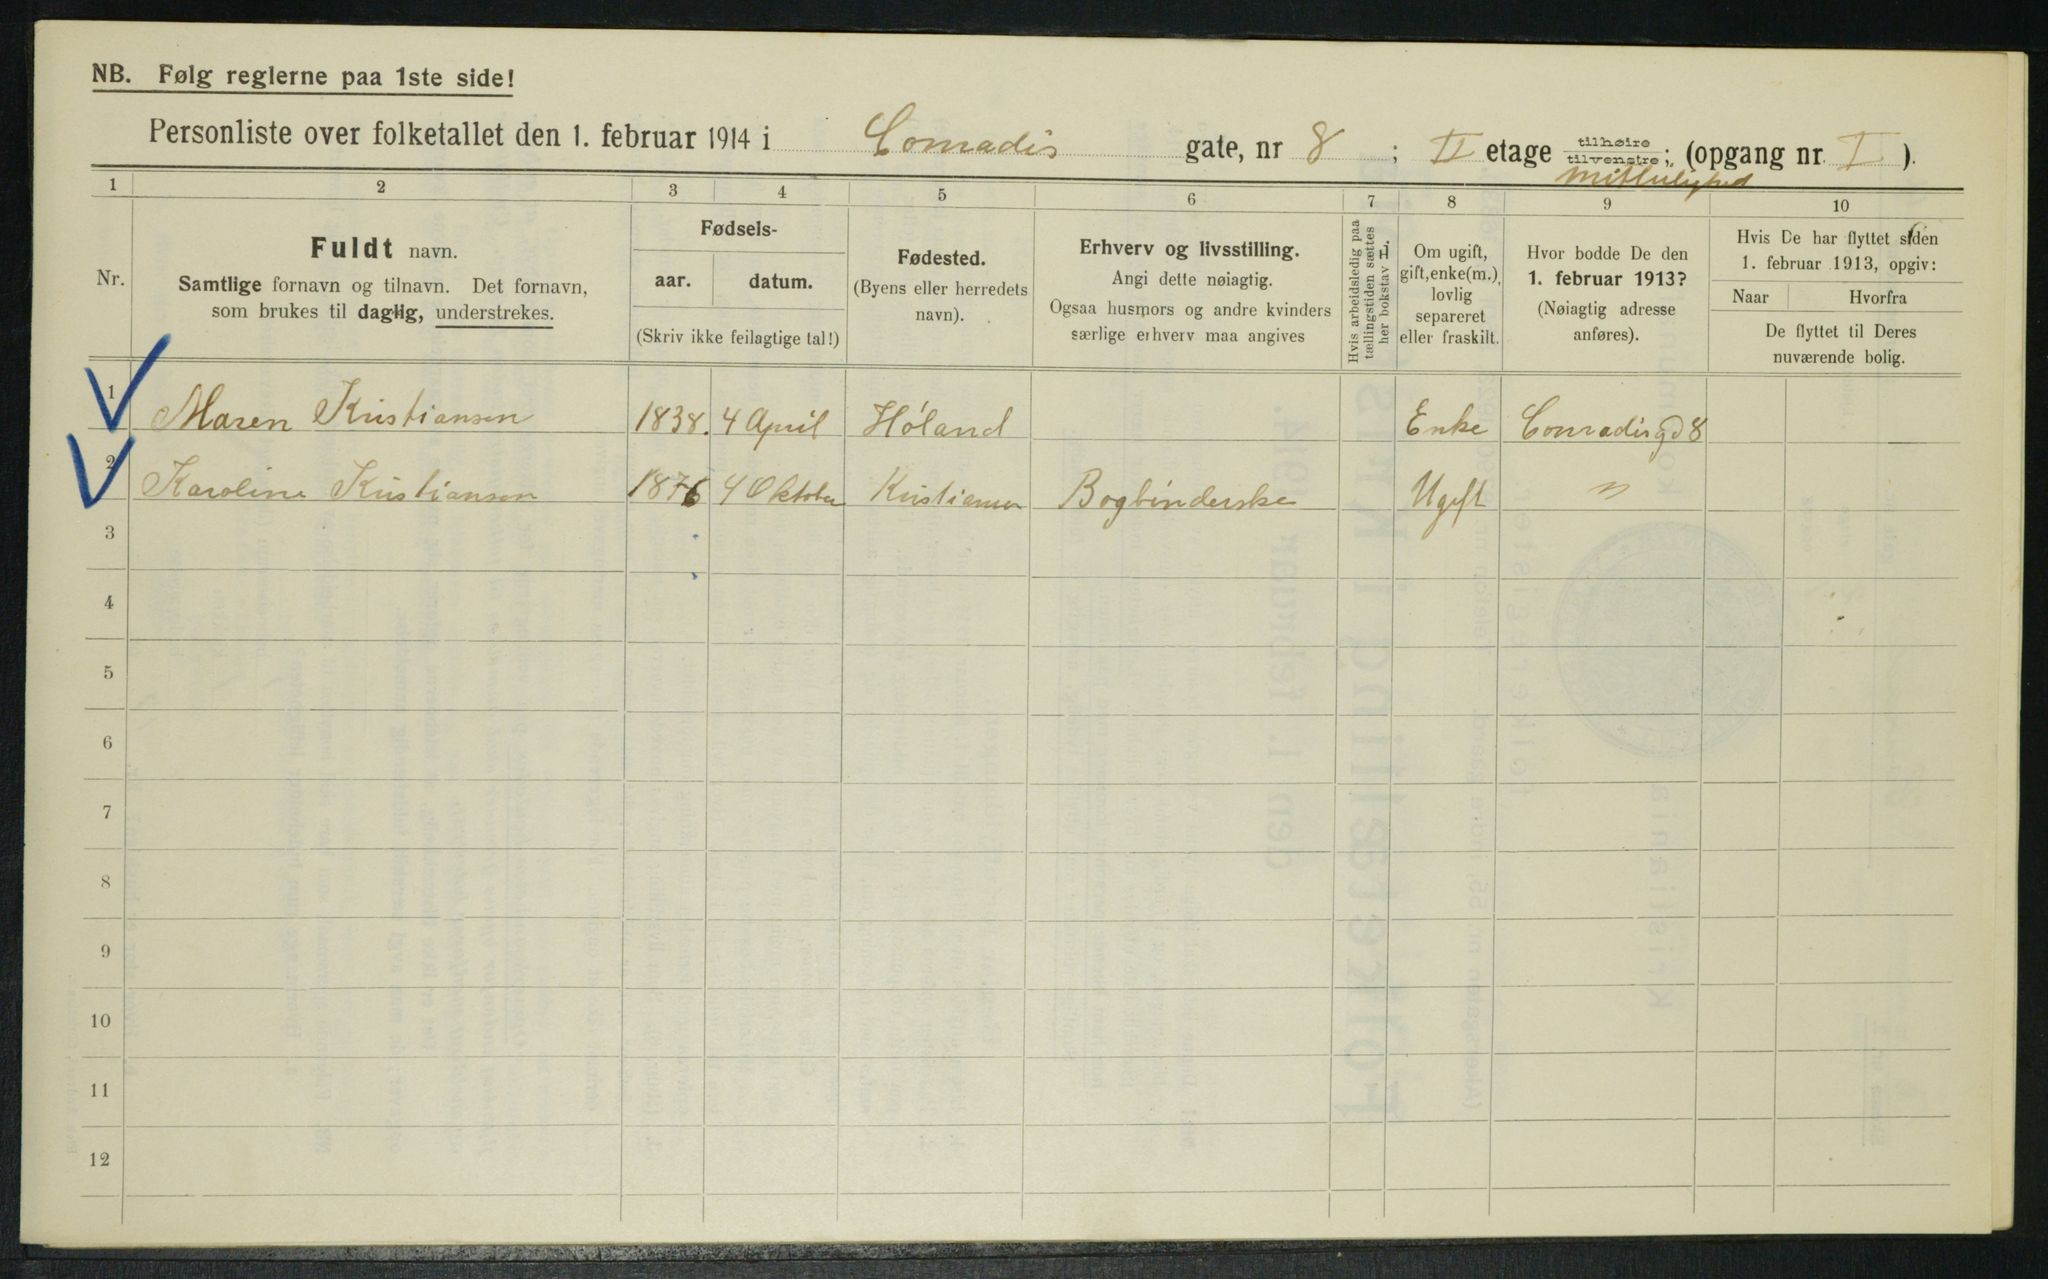 NB. Følg reglerne paa 1ste side!
Personliste over folketallet den 1. februar 1914 i Conradis gate, nr 8 ; II etage tilhøire tilvenstre; (opgang nr. I ).
1 2 3 4 5 6 7 8 9 10
Nr.
Fuldt navn.
Samtlige fornavn og tilnavn. Det fornavn,
som brukes til daglig, understrekes.
Fødsels-
aar. datum.
(Skriv ikke feilagtige tal!)
Fødested.
(Byens eller herredets
navn).
Erhverv og livsstilling.
Angi dette nøiagtig.
Ogsaa husmors og andre kvinders
særlige erhverv maa angives
Hvis arbeidsledig paa
tællingstiden sættes
her bokstav L.
Om ugift,
gift, enke(m.),
lovlig
separeret
eller fraskilt.
Hvor bodde De den
1. februar 1913?
(Nøiagtig adresse
anføres).
Hvis De har flyttet siden
1. februar 1913, opgiv:
Naar Hvorfra
De flyttet til Deres
nuværende bolig.
1 Maren Kristiansen 1838. 4 April Høland Enke Conradisgd 8
2 Karoline Kristiansen 1876 4 Oktober Bogbinderske Ugift "
3
4
5
6
7
8
9
10
11
12